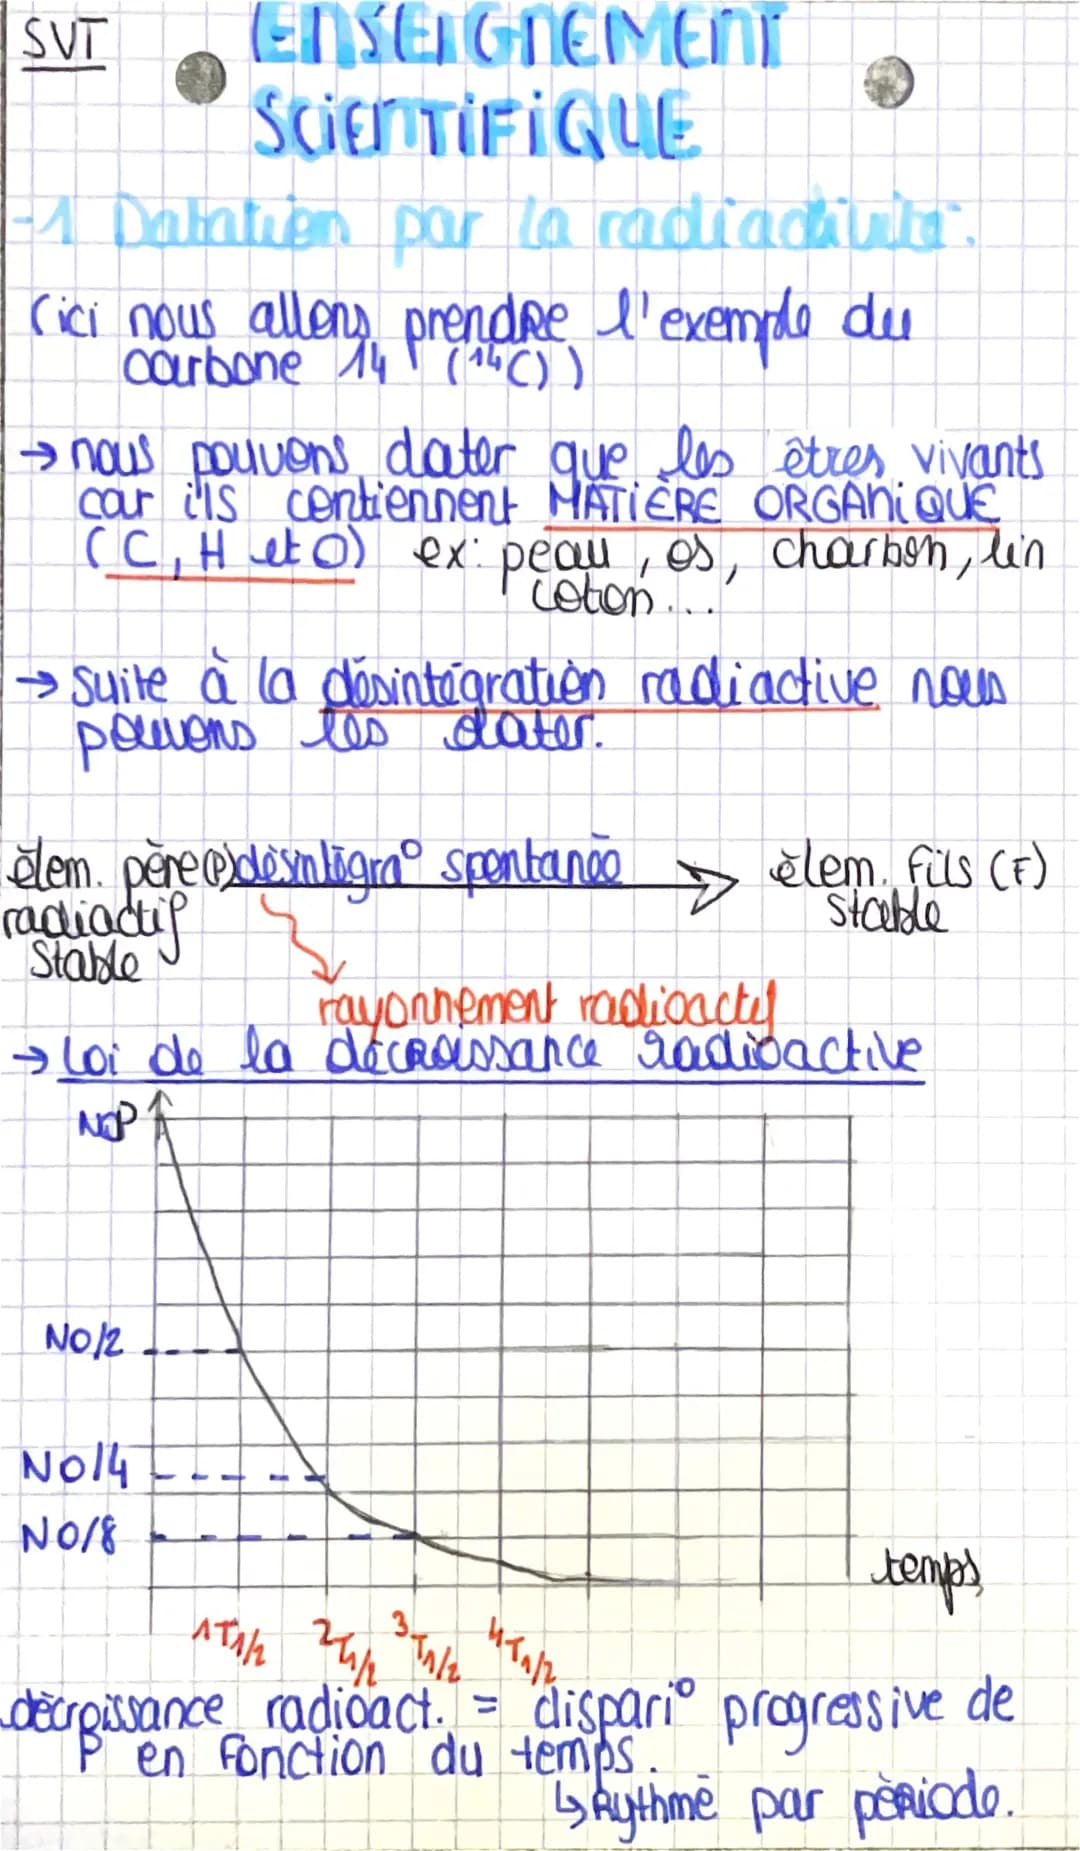 SVT
ENSEIGNEMENT
SCIENTIFIQUE
-1 Datation par la radiactivité.
(ici nous allons prendre l'exemple du
carbone 14 (¹⁴C))
→ nous pouvons dater que les êtres vivants
car ils contiennent MATIÈRE ORGANIQUE
(C, H et O) ex: peau, os, charbon, lin
coton...
→ suite à la désintégration radiactive nous
pouvons les dater.
élem. père (P) désintégra° spontanée élem. Fils (F)
radiactif stable
stable
rayonnement radioactif
→ Loi de la décroissance radioactive
NOP
NO/2
NO/4
NO/8
temps
1T1/2 2T1/2 3T1/2 4T1/2
décroissance radioact. = dispari° progressive de
P en fonction du temps.
↳ Rythmé par période.